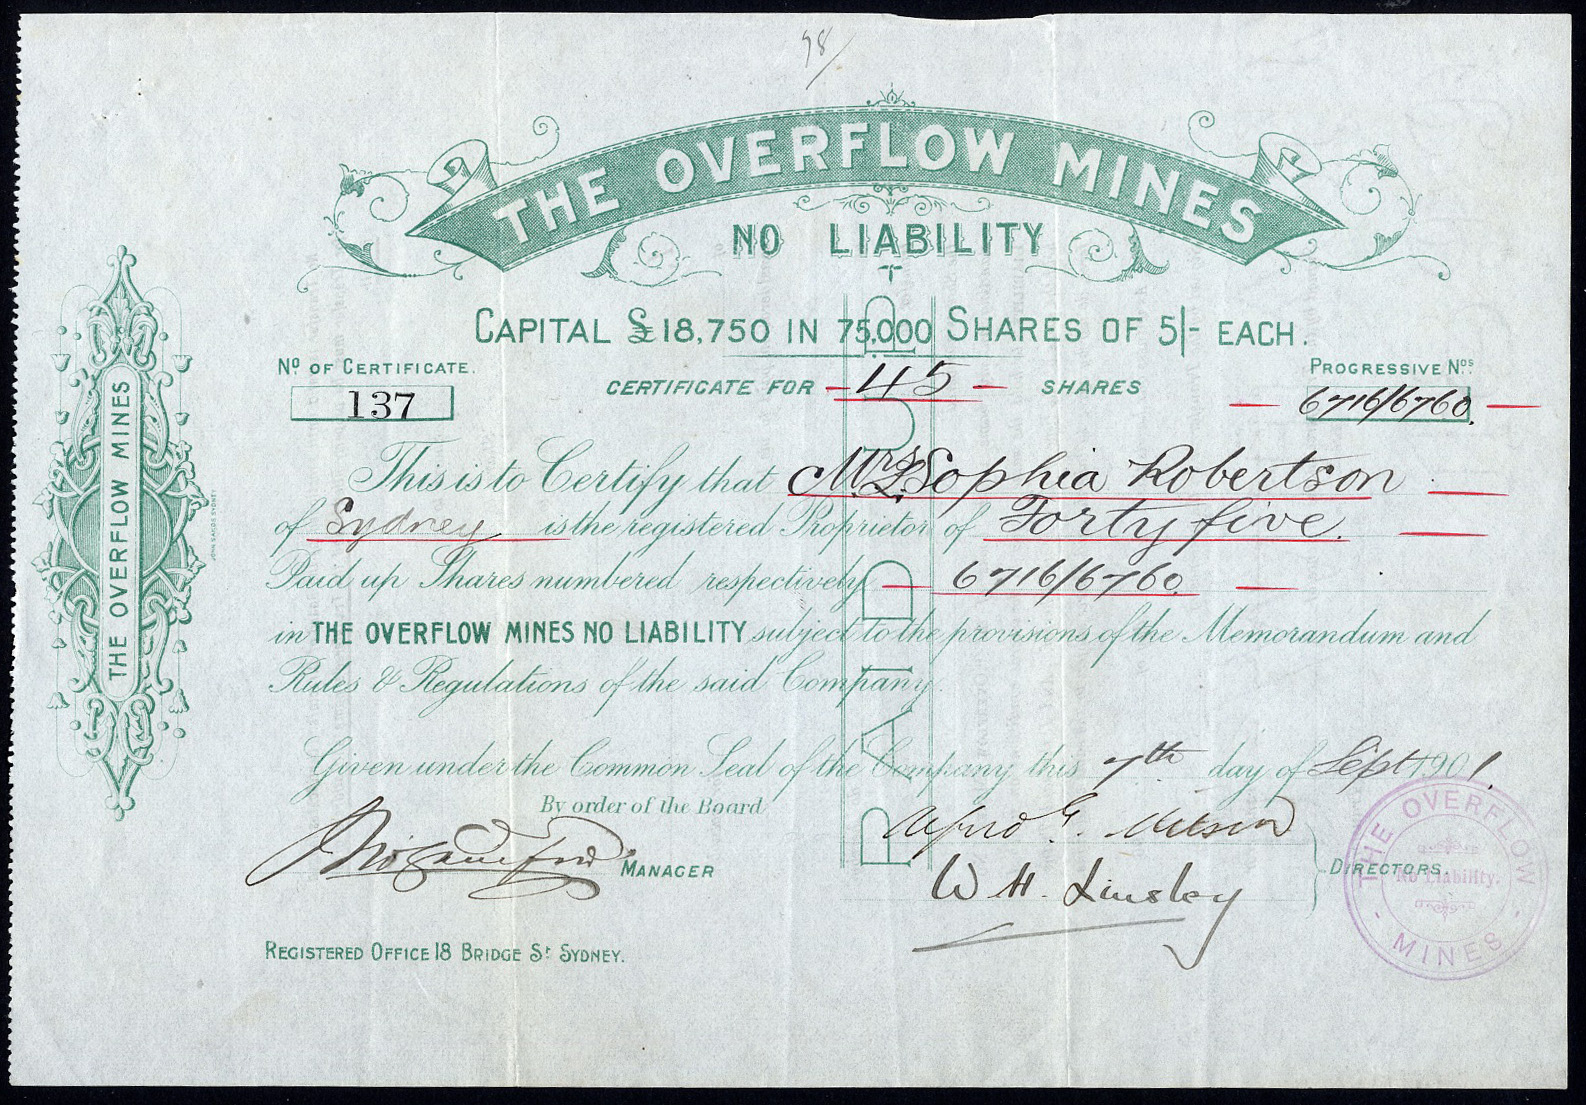 98/
THE OVERFLOW MINES
NO LIABILITY
CAPITAL £18,750 IN 75,000 SHARES OF 5/- EACH.
Nº OF CERTIFICATE.
137
CERTIFICATE FOR - 45 - SHARES
PROGRESSIVE Nºˢ
6716/6760.
This is to Certify that Mrs. Sophia Robertson
of Sydney is the registered Proprietor of Forty five.
Paid up Shares numbered respectively 6716/6760.
in THE OVERFLOW MINES NO LIABILITY subject to the provisions of the Memorandum and
Rules & Regulations of the said Company.
Given under the Common Seal of the Company this 7th day of Sept 1901
By order of the Board
MANAGER
Alfred G. Milson
W H. Linsley
DIRECTORS.
REGISTERED OFFICE 18 BRIDGE Sᵗ SYDNEY.
PAID UP
THE OVERFLOW MINES
JOHN SANDS SYDNEY
THE OVERFLOW
No Liability.
- MINES -